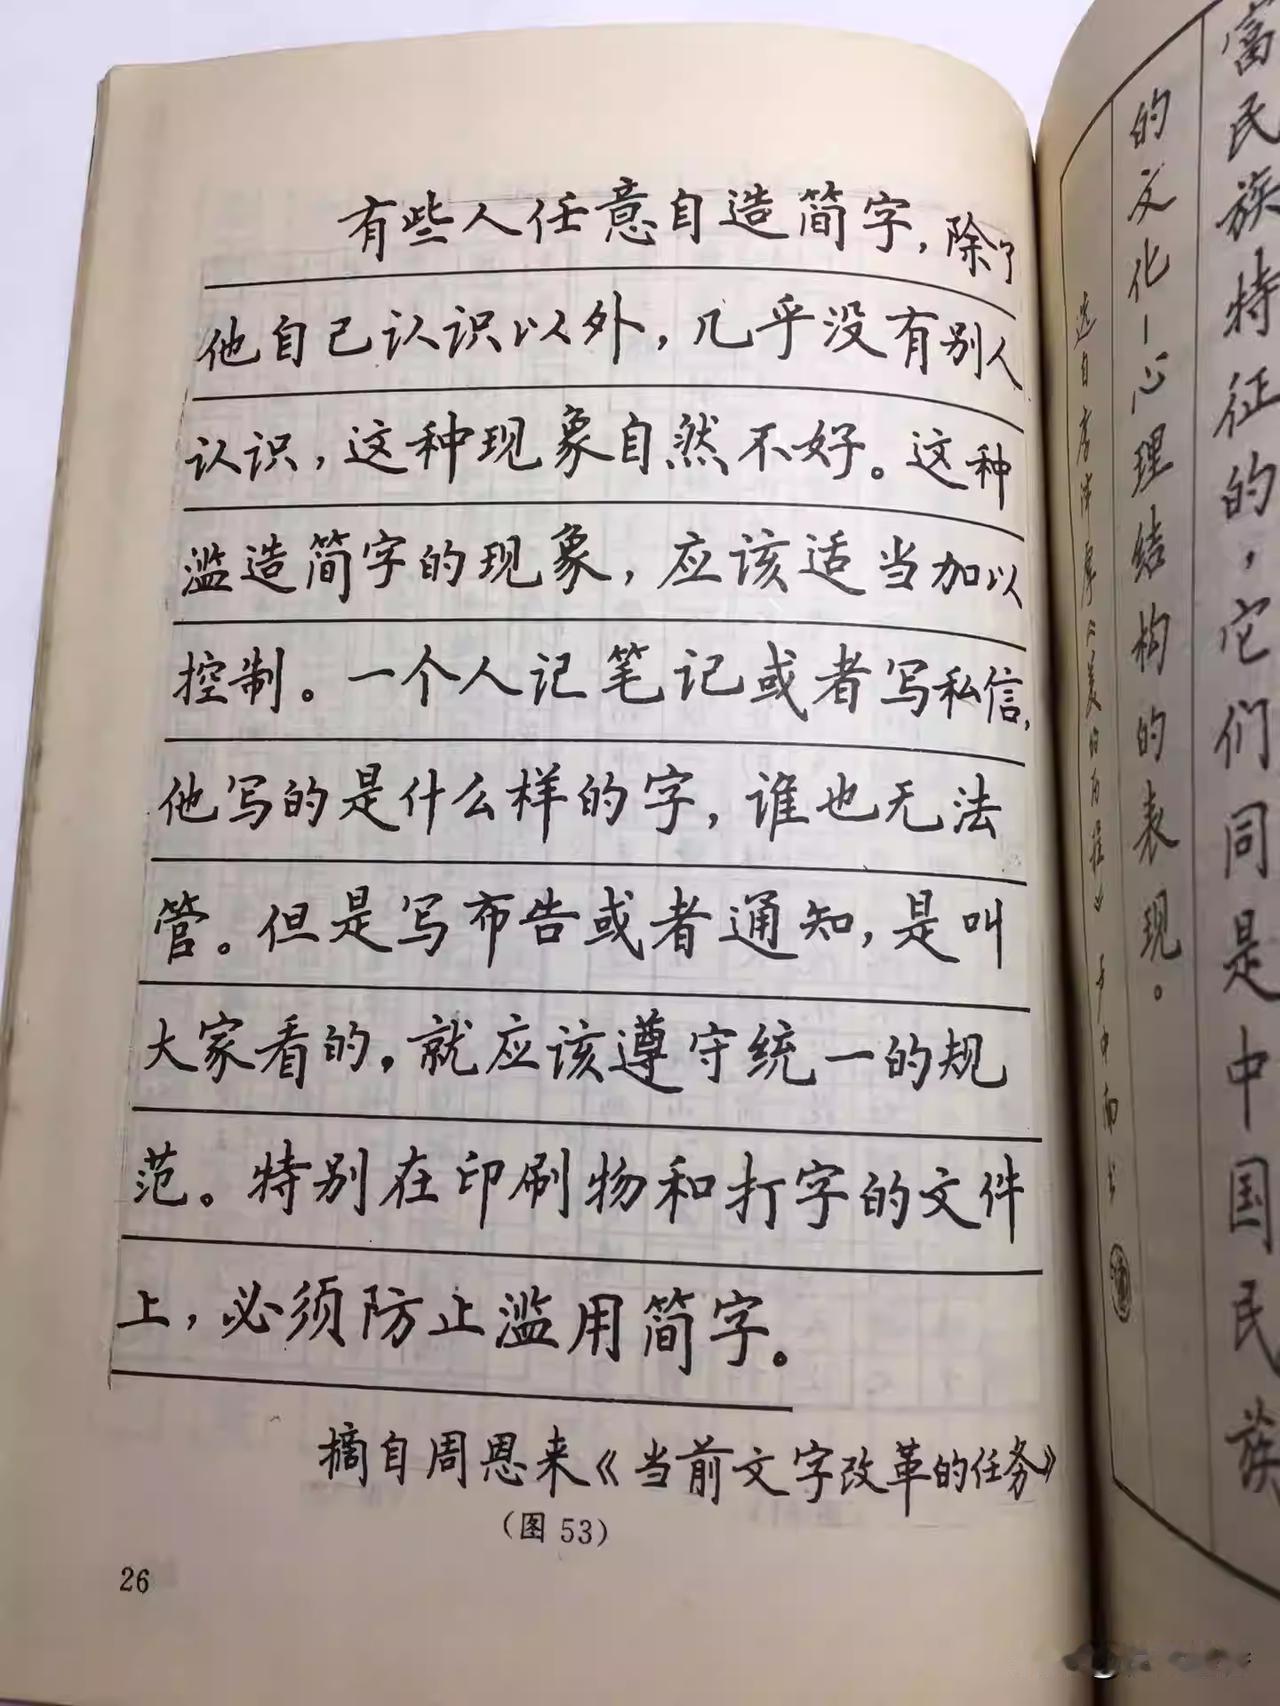 有些人任意自造简字，除了
他自己认识以外，几乎没有别人
认识，这种现象自然不好。这种
滥造简字的现象，应该适当加以
控制。一个人记笔记或者写私信，
他写的是什么样的字，谁也无法
管。但是写布告或者通知，是叫
大家看的，就应该遵守统一的规
范。特别在印刷物和打字的文件
上，必须防止滥用简字。
摘自周恩来《当前文字改革的任务》
（图 53）
26
富民族特征的，它们同是中国民族
的文化—心理结构的表现。
选自李泽厚《美的历程》